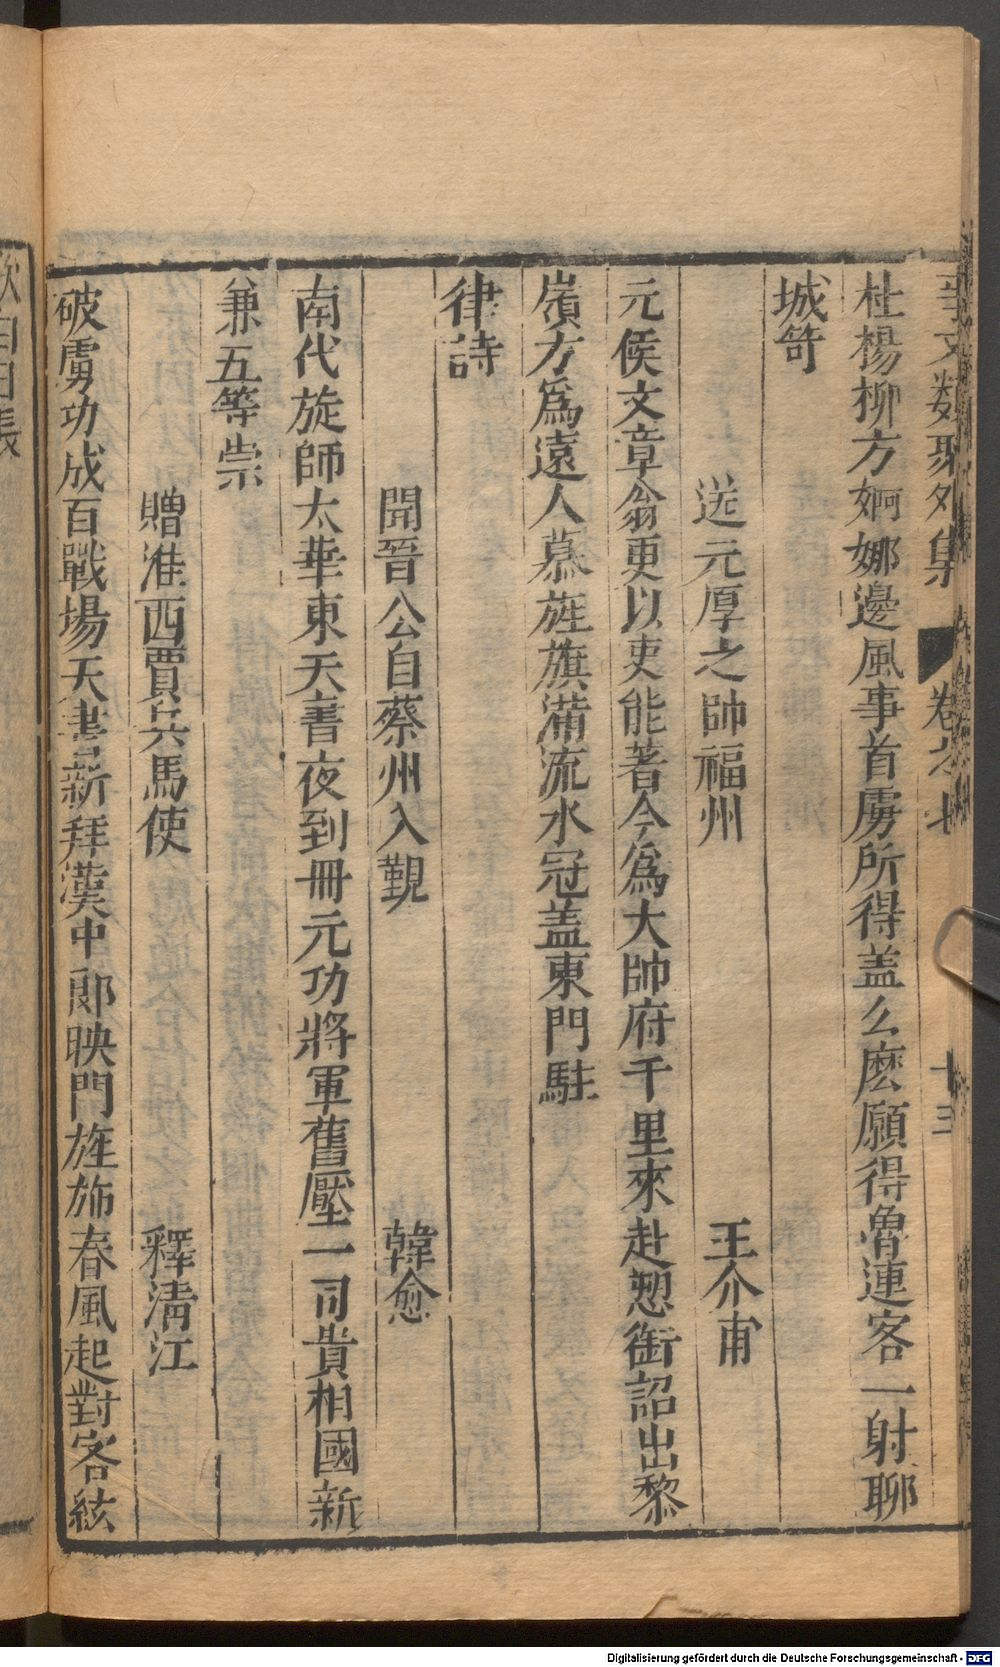 事文類聚外集 卷之七 十三
杜楊柳方婀娜邊風事首虜所得盖么麽願得魯連客一射聊
城笴
送元厚之帥福州 王介甫
元侯文章翁更以吏能著今爲大帥府千里來赴愬銜詔出黎
嶺方爲遠人慕旌旗滿流水冠盖東門駐
律詩
聞晉公自蔡州入覲 韓愈
南代旋師太華東天書夜到冊元功將軍舊壓一司貴相國新
兼五等崇
贈淮西賈兵馬使 釋清江
破虜功成百戰場天書新拜漢中郎映門旌斾春風起對客絃
歌白日長
Digitalisierung gefördert durch die Deutsche Forschungsgemeinschaft - DFG